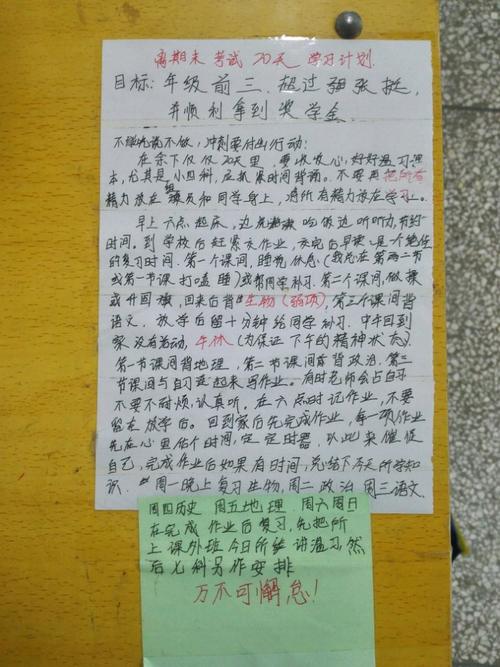 离期末考试20天 学习计划
目标:年级前三、超过 张挺,
并顺利拿到奖学金
不能光说不做,冲刺要付出行动:
在余下仅仅20天里,要收收心,好好温习课
本,尤其是小四科,应抓紧时间背诵。不要再把所有
精力放在 和同学身上,将所有精力放在学习上。
早上六点起床,边 吃饭边听听力,节约
时间。到学校后赶紧交作业,交完后早读,是个绝佳
的复习时间。第一个课间,睡觉休息(我老在第两一节
或第一节课打瞌睡)或帮同学补习。第二个课间,做操
或升国旗,回来后背生物(弱项),第三个课间背
语文,放学后留十分钟给同学补习。中午回到
家没有活动,午休(为保证下午的精神状态)
第一节课间背地理,第二节课间背政治,第三
节课间与自习连起来写作业。有时老师会占自习
不要不耐烦,认真听。在六点时记作业,不要
留在放学后。回到家后先完成作业,每一项作业
先在心里估个时间,定定时器,以此来催促
自己,完成作业后如果有时间,总结下今天所学知
识。周一晚上复习生物,周二政治 周三语文
周四历史 周五地理 周六周日
在完成作业后复习,先把所
上课外班今日所 讲温习,然
后七科另作安排
万不可懈怠!